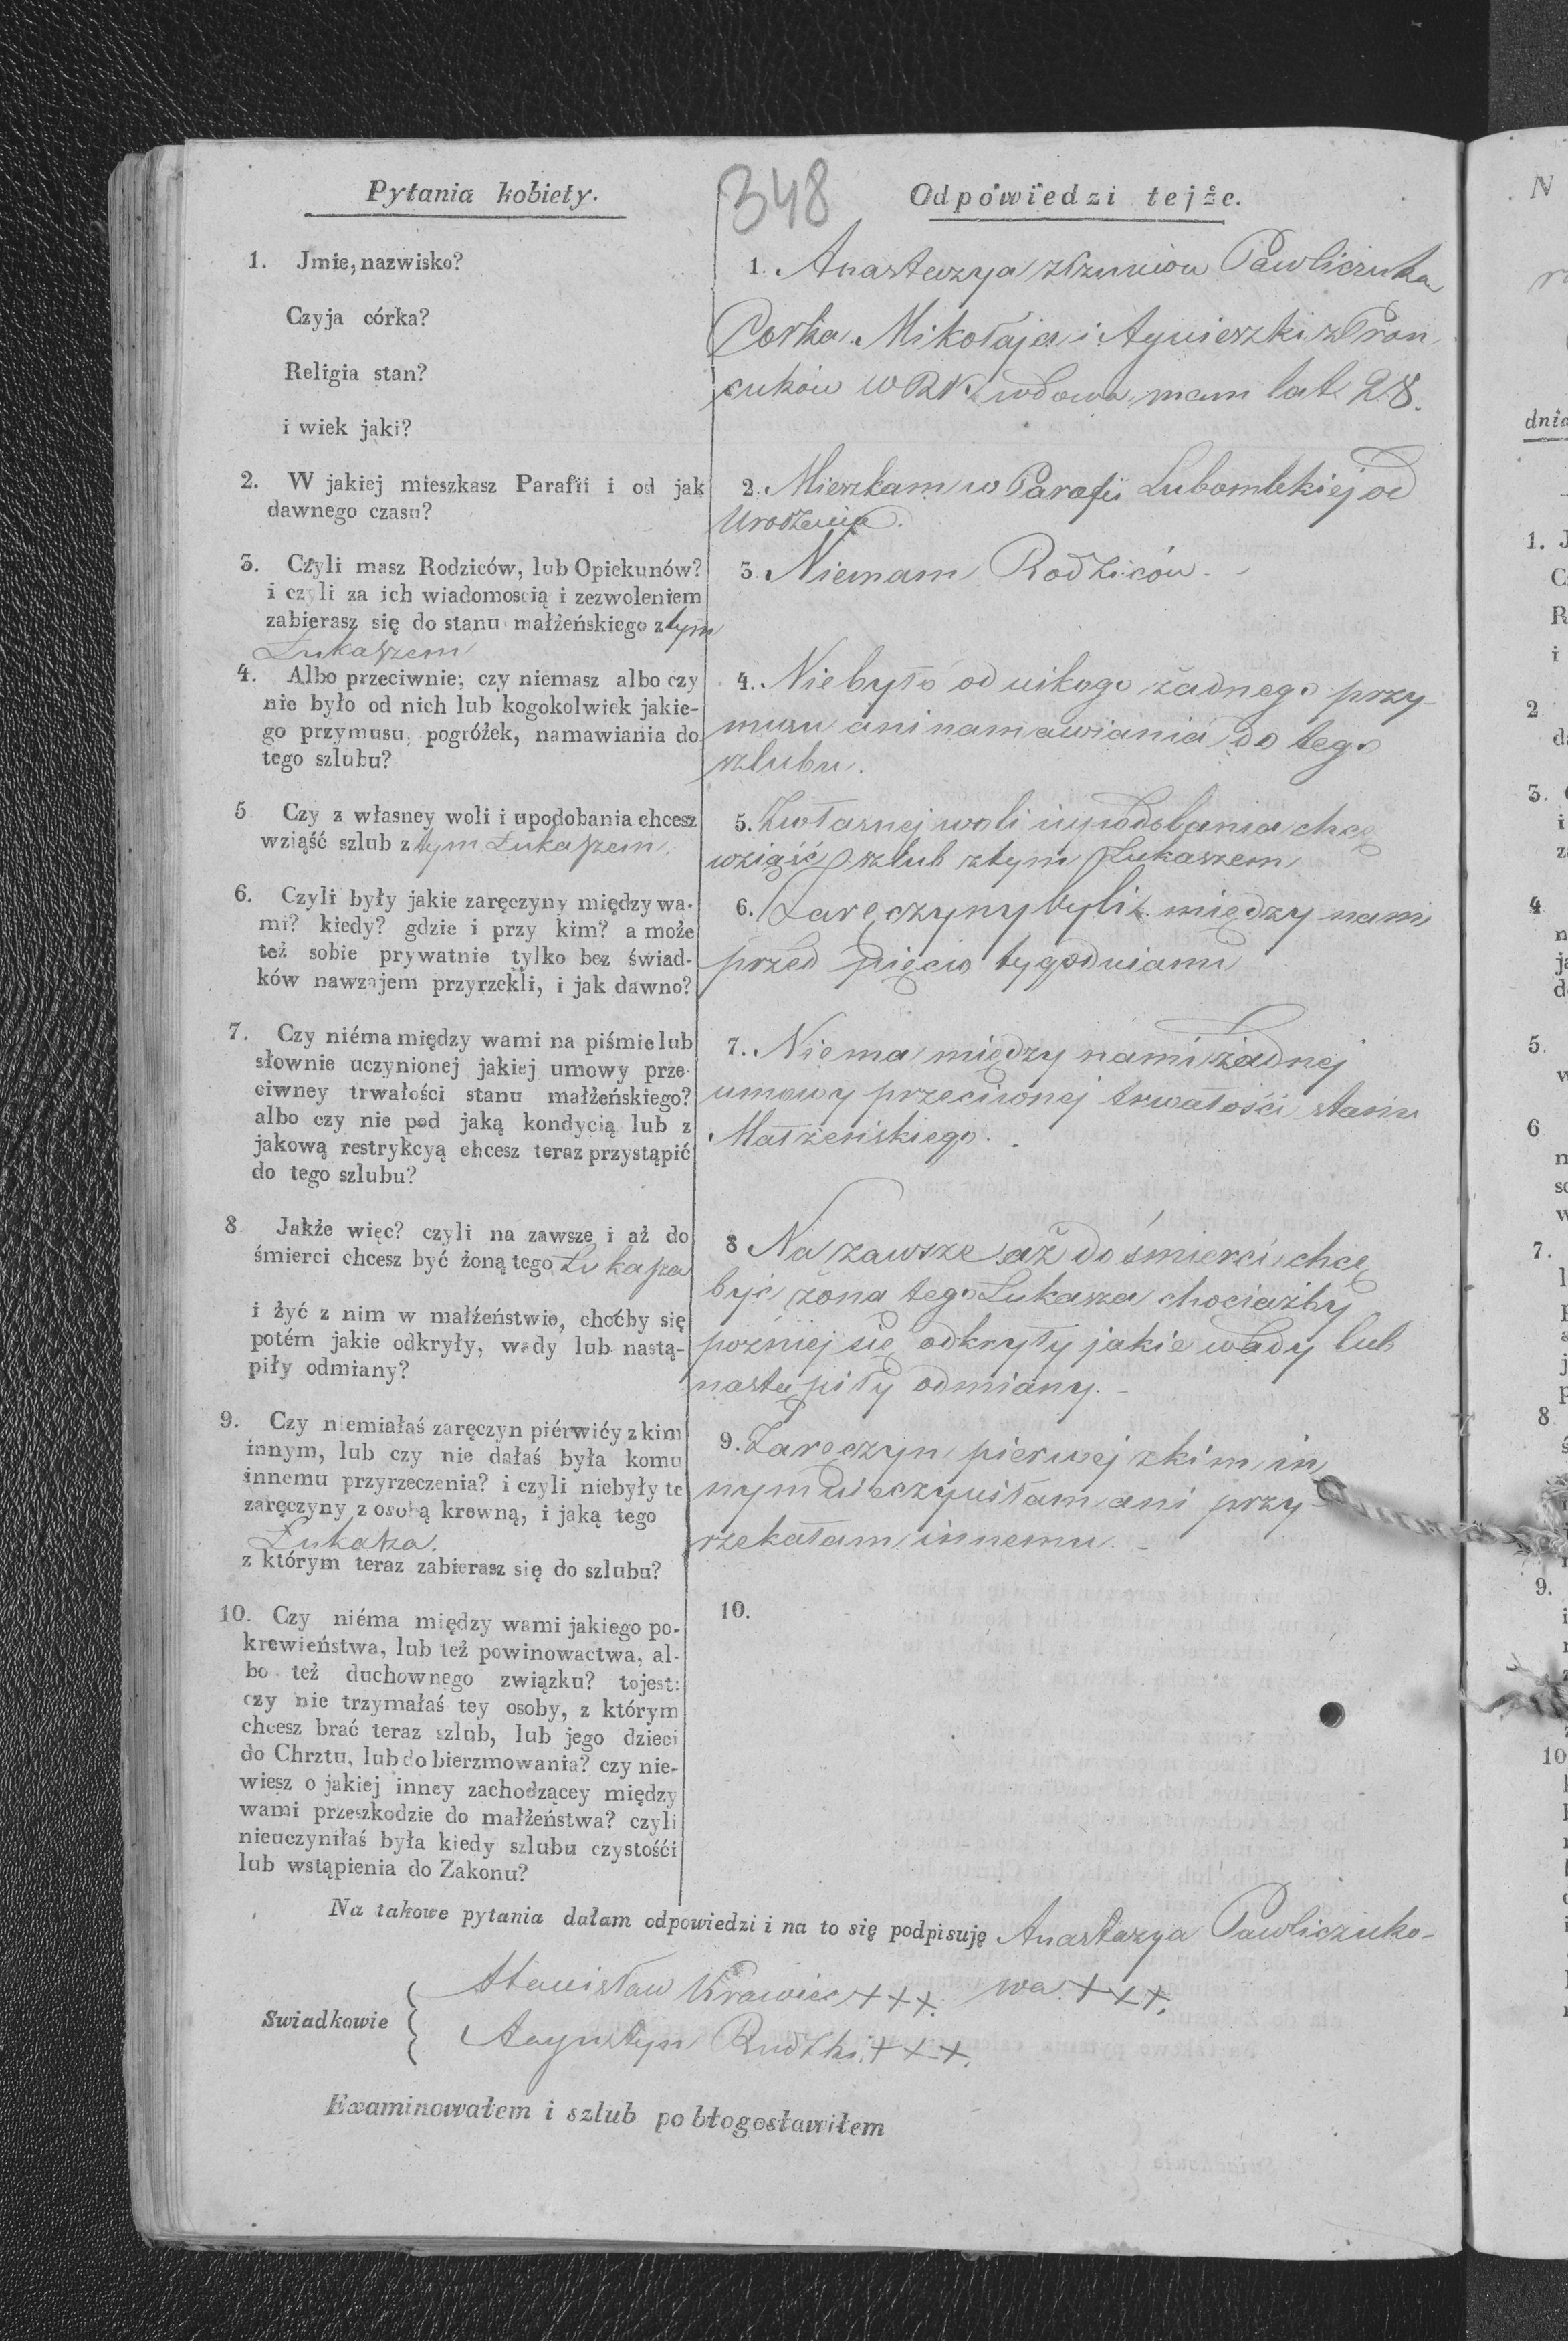 348
Pytania kobiety.
1. Jmie, nazwisko?
Czyja córka?
Religia stan?
i wiek jaki?
2. W jakiej mieszkasz Parafii i od jak
dawnego czasu?
3. Czyli masz Rodziców, lub Opiekunów?
i czyli za ich wiadomoscią i zezwoleniem
zabierasz się do stanu małżeńskiego z tym
Łukaszem
4. Albo przeciwnie; czy niemasz albo czy
nie było od nich lub kogokolwiek jakie-
go przymusu, pogróżek, namawiania do
tego szlubu?
5 Czy z własney woli i upodobania chcesz
wziąść szlub z tym Łukaszem.
6. Czyli były jakie zaręczyny między wa-
mi? kiedy? gdzie i przy kim? a może
też sobie prywatnie tylko bez świad-
ków nawzajem przyrzekli, i jak dawno?
7. Czy niéma między wami na piśmie lub
słownie uczynionej jakiej umowy prze-
ciwney trwałości stanu małżeńskiego?
albo czy nie pod jaką kondycią lub z
jakową restrykcyą chcesz teraz przystąpić
do tego szlubu?
8. Jakże więc? czyli na zawsze i aż do
śmierci chcesz być żoną tego Łukasza
i żyć z nim w małżeństwie, choćby się
potém jakie odkryły, wady lub nastą-
piły odmiany?
9. Czy niemiałaś zaręczyn piérwićy z kim
innym, lub czy nie dałaś była komu
innemu przyrzeczenia? i czyli niebyły te
zaręczyny z osobą krewną, i jaką tego
Łukasza.
z którym teraz zabierasz się do szlubu?
10. Czy niéma między wami jakiego po-
krewieństwa, lub też powinowactwa, al-
bo też duchownego związku? tojest:
czy nie trzymałaś tey osoby, z którym
chcesz brać teraz szlub, lub jego dzieci
do Chrztu, lub do bierzmowania? czy nie-
wiesz o jakiej inney zachodzącey między
wami przeszkodzie do małżeństwa? czyli
nieuczyniłaś była kiedy szlubu czystośći
lub wstąpienia do Zakonu?
Odpowiedzi tejże.
1. Anastazya Pawliczuka
Corka Mikołaja i Agnieszki z Pron
cuków w RK wdowa mam lat 28.
2. Mieszkam w Parafii Lubomlskiej od
Urodzenia.
3. Niemam Rodziców.
4. Niebyło od nikogo żadnego przy-
musu ani namawiania do tego
szlubu.
5. Zwłasnej woli i upodobania chcę
wziąść szlub ztym Łukaszem
6. Zaręczyny byli między nami
przed pięcio tygodniami
7. Niema między nami żadnej
umowy przeciwnej trwałości stanu
Małżeńskiego.
8 Na zawsze i aż do śmierci chcę
być żona tego Łukasza chociażby
poźniej się odkryły jakie wady lub
nastąpiły odmiany.
9. Zaręczyn pierwej zkim in
nym nieczyniłam ani przy-
rzekałam innemu.
10.
Na takowe pytania dałam odpowiedzi i na to się podpisuję Anastazya Pawliczuko-
wa +++.
Swiadkowie
Stanisław Krawiec +++.
Augustyn Rudzki +++.
Examinowałem i szlub pobłogosławiłem